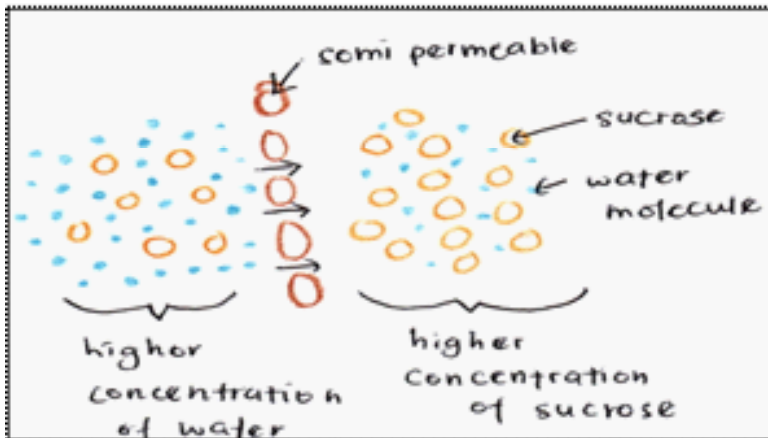 somi permeable
sucrose
water
molecule
highor
concentration
of water
higher
concentration
of sucrose